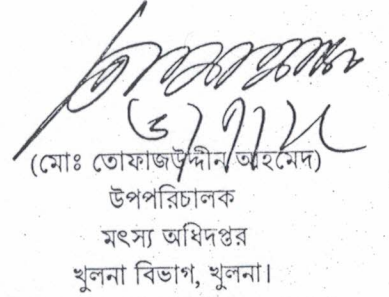 (মোঃ তোফাজউদ্দীন আহমেদ)
উপপরিচালক
মৎস্য অধিদপ্তর
খুলনা বিভাগ, খুলনা।